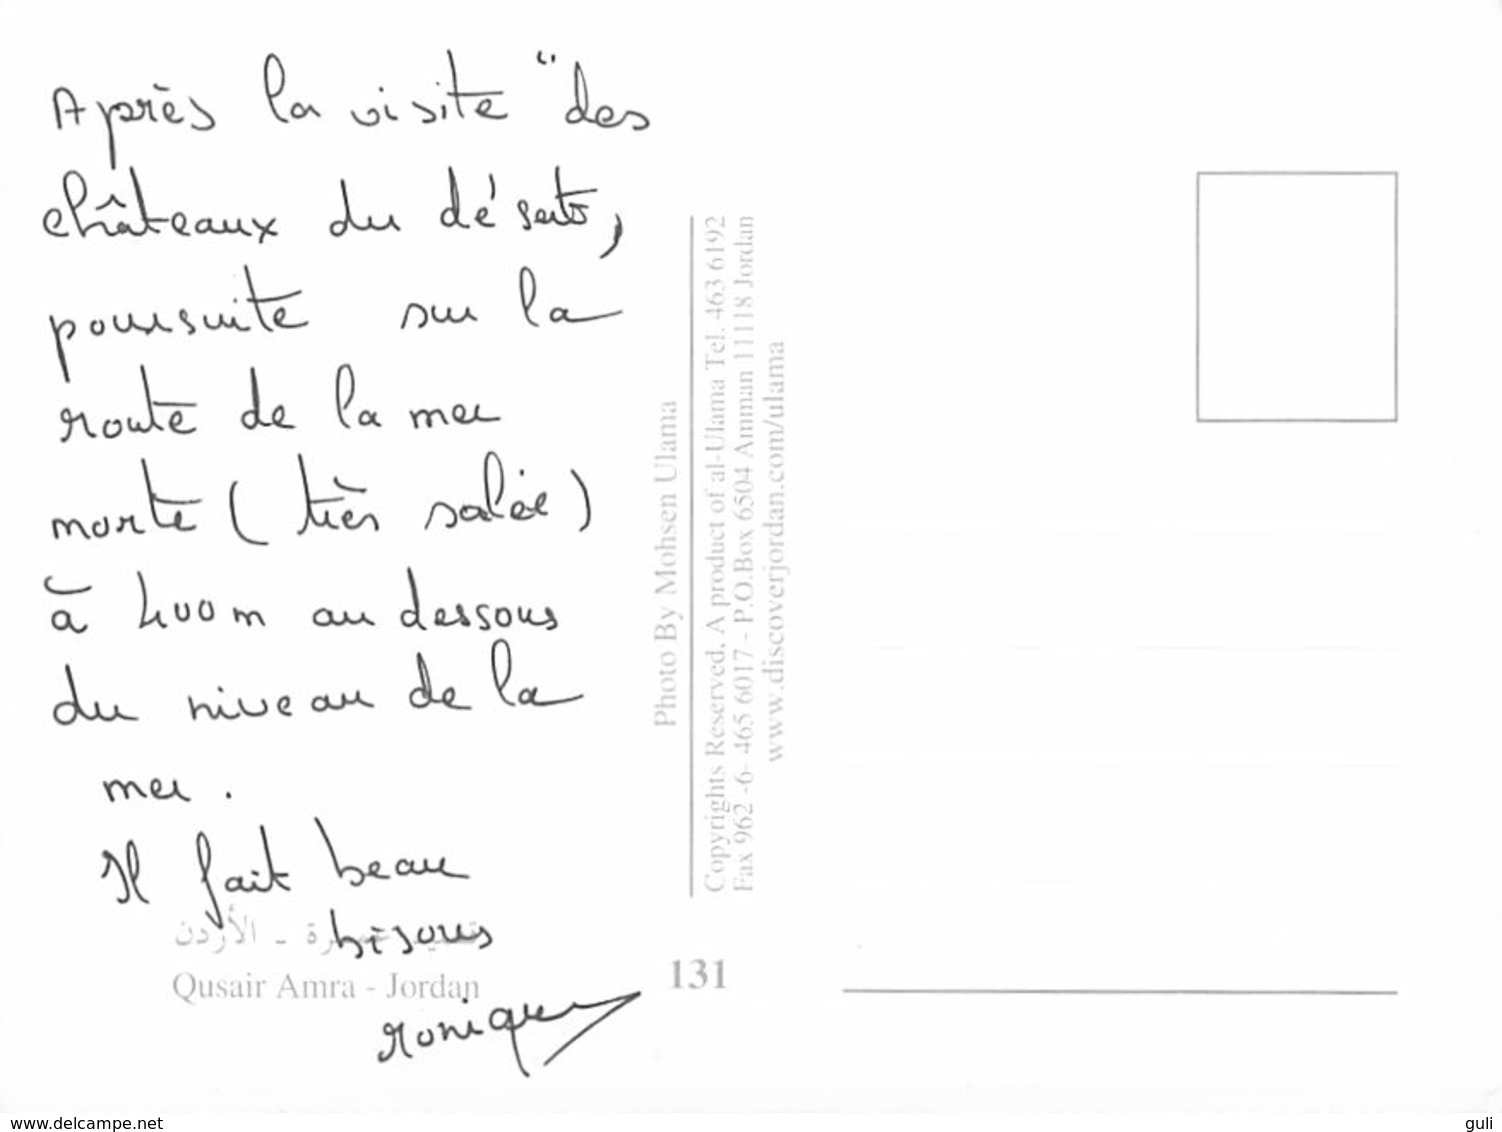 Après la visite "des
châteaux du désert,
poursuite sur la
route de la mer
morte (très salée)
à 400m au dessous
du niveau de la
mer.
Il fait beau
bisous
Monique
الأردن
Qusair Amra - Jordan
131
Photo By Mohsen Ulama
Copyrights Reserved. A product of al-Ulama Tel. 463 6192
Fax 962 -6- 465 6017 - P.O.Box 6504 Amman 11118 Jordan
www.discoverjordan.com/ulama
www.delcampe.net
guli